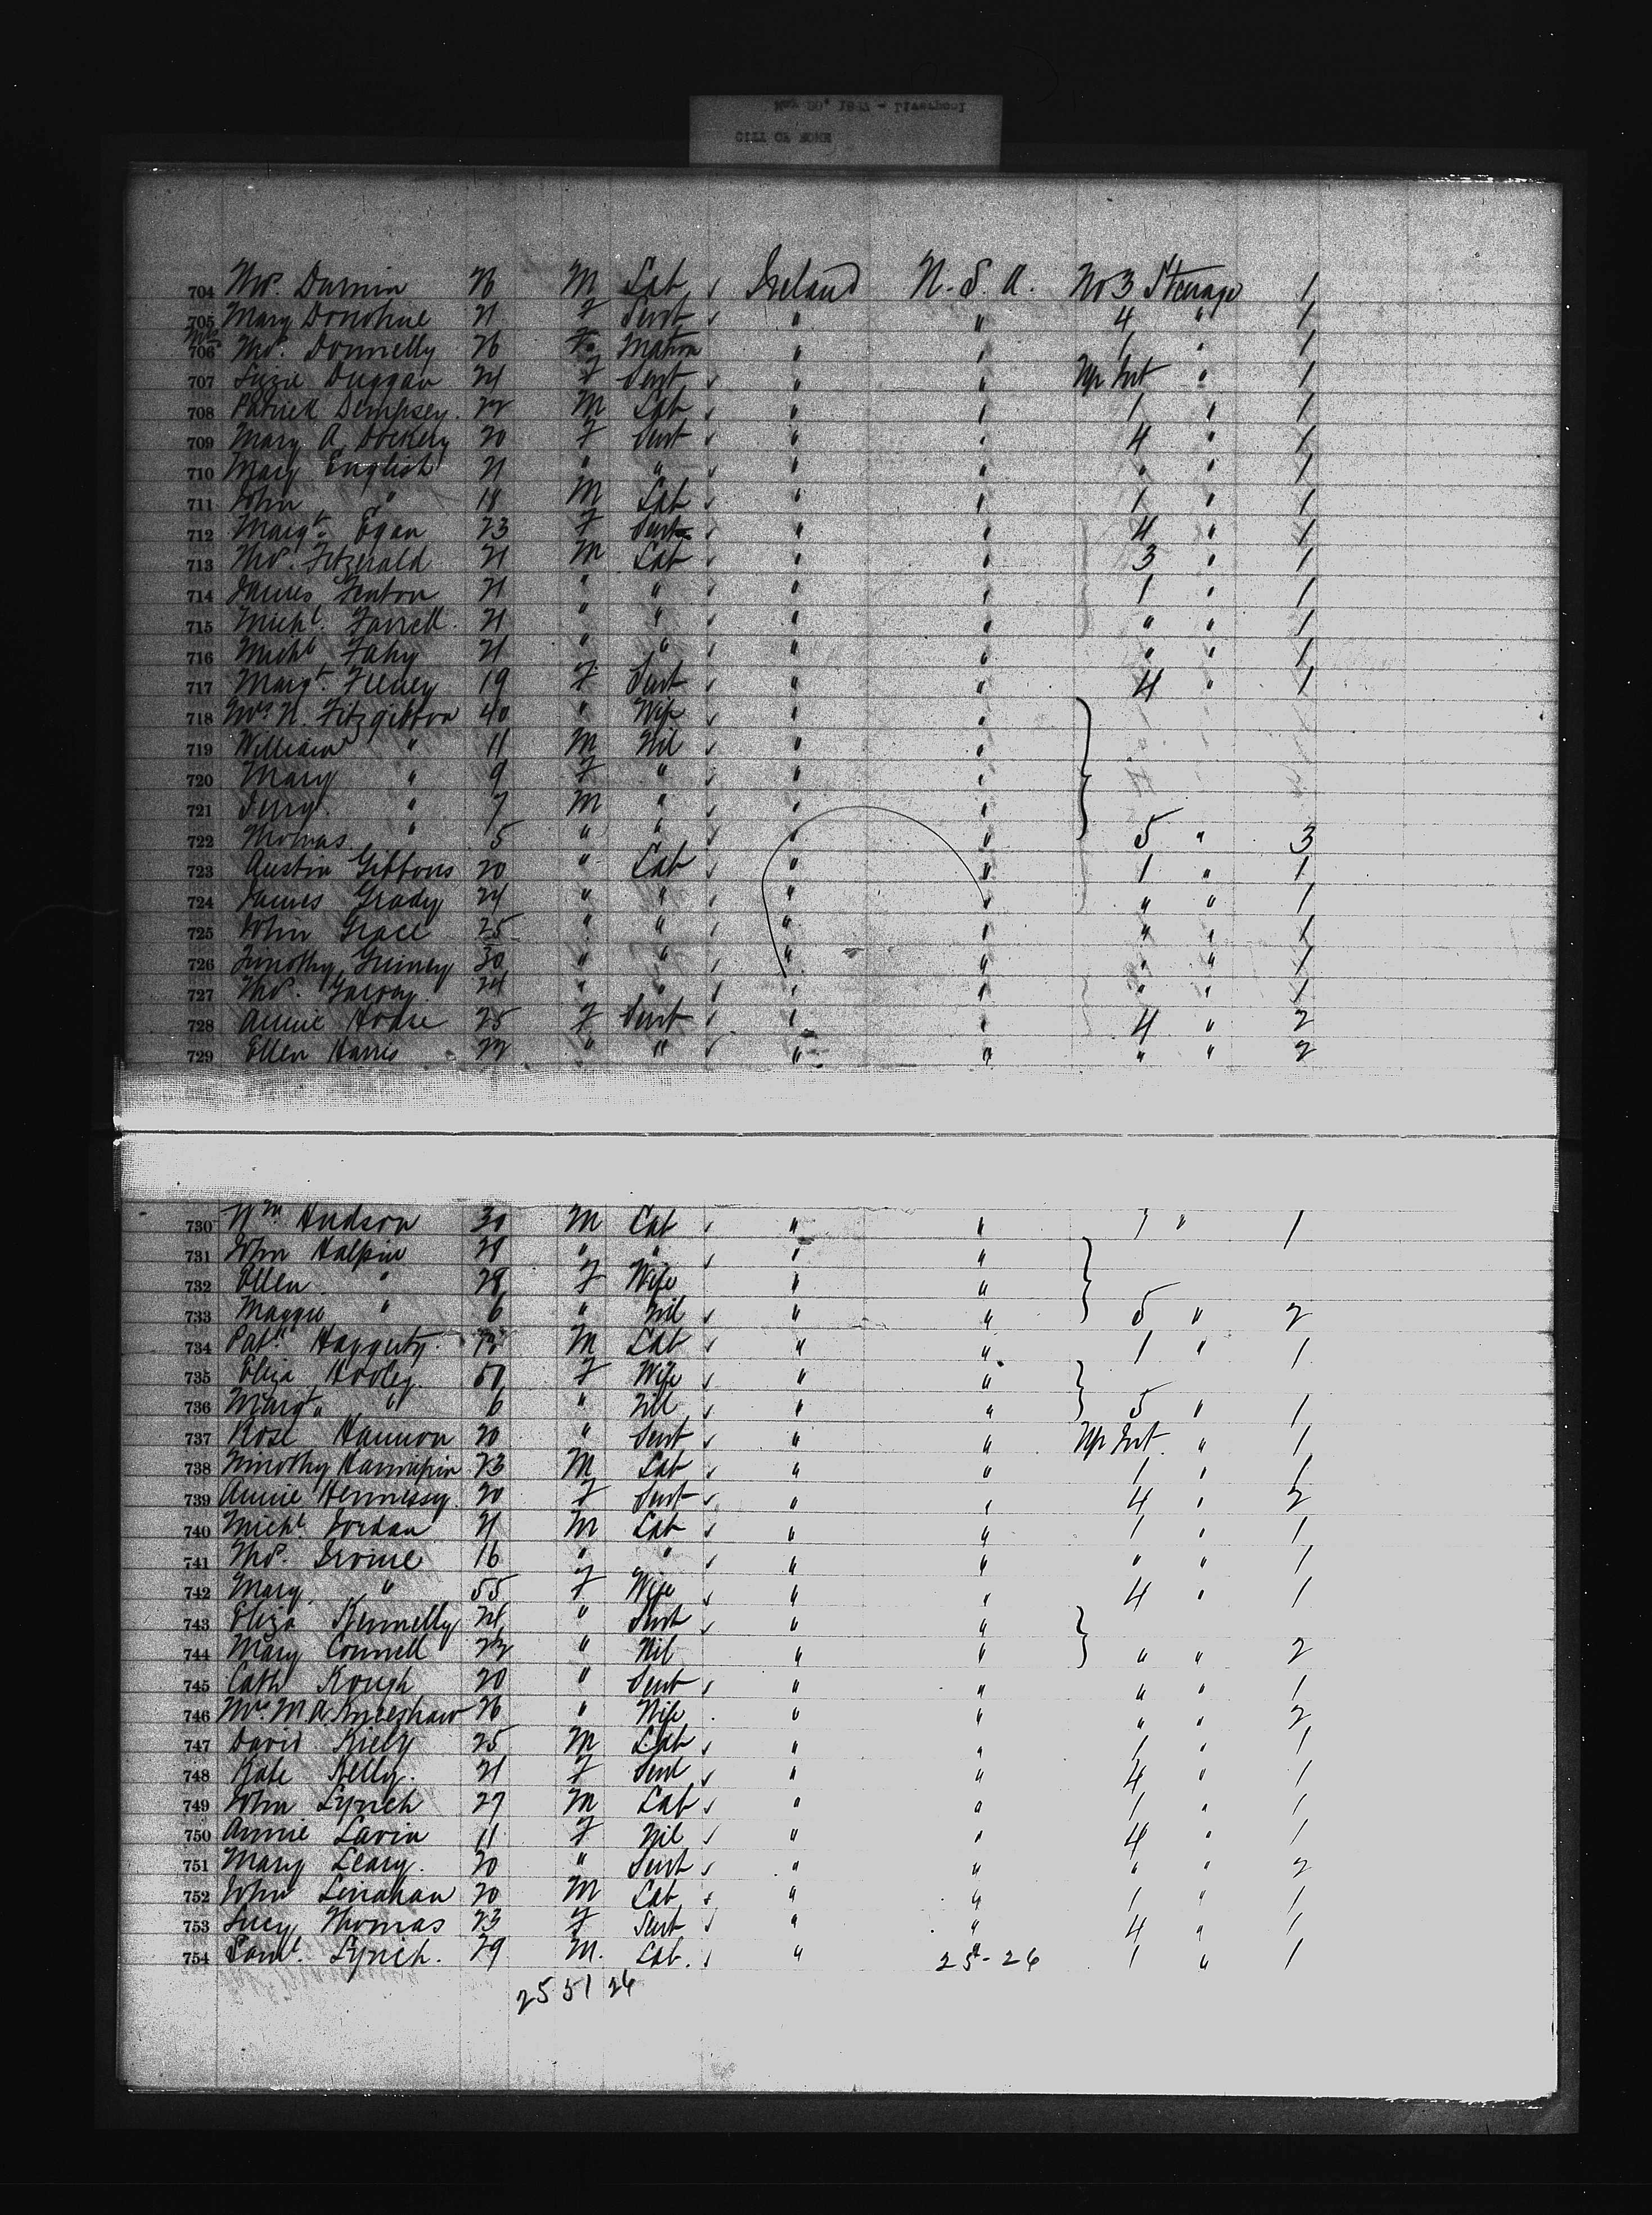 CITY OF ROME
704 Thos. Durnin 26 M Lab ✓ Ireland U. S. A. No 3 Steerage 1
705 Mary Donohue 21 F Servt ✓ " " 4 " 1
706 Mrs Thos. Donnelly 26 F. Matron " " 1 " 1
707 Lizzie Duggan 24 F Servt ✓ " " Up Int " 1
708 Patrick Dempsey. 22 M Lab ✓ " " 1 " 1
709 Mary A. 20 F Servt ✓ " " 4 " 1
710 Mary English 21 " " ✓ " " " " 1
711 John " 18 M Lab ✓ " " 1 " 1
712 Margt. Egan 23 F Servt ✓ " " 4 " 1
713 Thos. Fitzgerald 21 M Lab ✓ " " 3 " 1
714 James Fenton 21 " " ✓ " " 1 " 1
715 Michl. Farrell. 21 " " ✓ " " " " 1
716 Michl Fahy 21 " " ✓ " " " " 1
717 Margt. Feeney 19 F Servt ✓ " " 4 " 1
718 Mrs N. Fitzgibbon 40 " Wife ✓ " "
719 William " 11 M Nil ✓ " "
720 Mary " 9 F " ✓ " "
721 Jerry " 7 M " ✓ " "
722 Thomas " 5 " " ✓ " " 5 " 3
723 Austin Gibbons 20 " Lab ✓ " " 1 " 1
724 James Grady 24 " " ✓ " " " " 1
725 John Grace 25 " " ✓ " " " " 1
726 Timothy Guiney 30 " " ✓ " " " " 1
727 Thos. Garvey. 24 " " ✓ " " " " 1
728 Annie Hoare 25 F Servt ✓ " " 4 " 2
729 Ellen Harris 22 " " ✓ " " " " 2
730 Wm Hudson 30 M Lab ✓ " " 1 " 1
731 John Halpin 28 " " ✓ " "
732 Ellen " 28 F Wife " "
733 Maggie " 6 " Nil ✓ " " 5 " 2
734 Patk Haggerty. 22 M Lab ✓ " " 1 " 1
735 Eliza Hooley. 50 F Wife ✓ " "
736 Margt. " 6 " Nil ✓ " " 5 " 1
737 Rose Hannon 20 " Servt ✓ " " Up Int. " 1
738 Timothy 23 M Lab ✓ " " 1 " 1
739 Annie Hennessy. 20 F Servt ✓ " " 4 " 2
740 Michl Jordan 21 M Lab ✓ " " 1 " 1
741 Thos. Irvine 16 " " ✓ " " " " 1
742 Mary " 55 F Wife ✓ " " 4 " 1
743 Eliza Kennelly 24 " Servt ✓ " "
744 Mary Connell 22 " Nil " " " " 2
745 Cath Keough 20 " Servt ✓ " " " " 1
746 Mrs. M. A. Kneeshaw 26 " Wife " " " " 2
747 David Kiely 25 M Lab ✓ " " 1 " 1
748 Kate Kelly. 21 F Servt ✓ " " 4 " 1
749 John Lynch 27 M Lab ✓ " " 1 " 1
750 Annie Lavin 11 F Nil ✓ " " 4 " 1
751 Mary Leary. 20 " Servt ✓ " " " " 2
752 John Lenahan 20 M Lab ✓ " " 1 " 1
753 Lucy Thomas 23 F Servt ✓ " " 4 " 1
754 Saml. Lynch. 29 M. Lab. ✓ " " 1 " 1
25-26
25 51 26